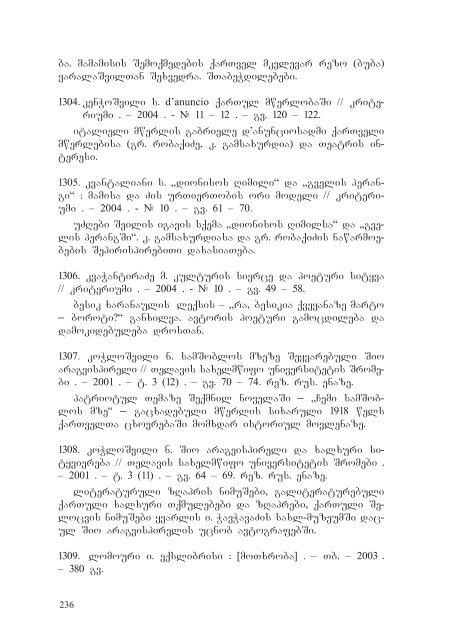 ბა. მამამისის შემოქმედების ქართველ მკვლევარ რეზო (ბუბა)
ყარალაშვილთან შეხვედრა. შთაბეჭდილებები.
1304. კენჭოშვილი ს. d’anuncio ქართულ მწერლობაში // კრიტე-
რიუმი . – 2004 . - № 11 – 12 . – გვ. 120 – 122.
იტალიელი მწერლის გაბრიელე დ’ანუნციოსადმი ქართველი
მწერლებისა (გრ. რობაქიძე, კ. გამსახურდია) და თეატრის ინ-
ტერესი.
1305. კვანტალიანი ს. „დიონისოს ღიმილი“ და „გველის პერან-
გი“ : მამისა და ძის ურთიერთობის ორი მოდელი // კრიტერი-
უმი . – 2004 . - № 10 . – გვ. 61 – 70.
უძღები შვილის იგავის სქემა „დიონისოს ღიმილსა“ და „გვე-
ლის პერანგში“. კ. გამსახურდიასა და გრ. რობაქიძის ნაწარმოე-
ბების შეპირისპირებითი დახასიათება.
1306. კვაჭანტირაძე მ. კულტურის სივრცე და პოეტური სიტყვა
// კრიტერიუმი . – 2004 . - № 10 . – გვ. 49 – 58.
ბესიკ ხარანაულის ლექსის – „რა, ბესიკია ქვეყანაზე მარტო
– ბოროტი?“ განხილვა. ავტორის პოეტური გამოცდილება და
დამოკიდებულება დროსთან.
1307. კოჭლოშვილი ნ. სამშობლოს მზეზე შეყვარებული შიო
არაგვისპირელი // თელავის სახელმწიფო უნივერსიტეტის შრომე-
ბი . – 2001 . – ტ. 3 (12) . – გვ. 70 – 74. რეზ. რუს. ენაზე.
პატრიოტულ თემაზე შექმნილ ნოველაში – „ჩემი სამშობ-
ლოს მზე“ – გაცხადებული მწერლის სიხარული 1918 წელს
ქართველთა ცხოვრებაში მომხდარ ისტორიულ მოვლენაზე.
1308. კოჭლოშვილი ნ. შიო არაგვისპირელი და ხალხური სი-
ტყვიერება // თელავის სახელმწიფო უნივერსიტეტის შრომები .
– 2001 . – ტ. 3 (11) . – გვ. 64 – 69. რეზ. რუს. ენაზე.
ლიტერატურული ზღაპრის ნიმუშები, გალიტერატურებული
ქართული ხალხური თქმულებები და ზღაპრები, ქართული შე-
ლოცვის ნიმუშები ყვარლის ი. ჭავჭავაძის სახლ-მუზეუმში დაც-
ულ შიო არაგვისპირელის უცნობ ავტოგრაფებში.
1309. ლომოური ი. ექსლიბრისი : [მოთხრობა] . – თბ. – 2003 .
– 380 გვ.
236